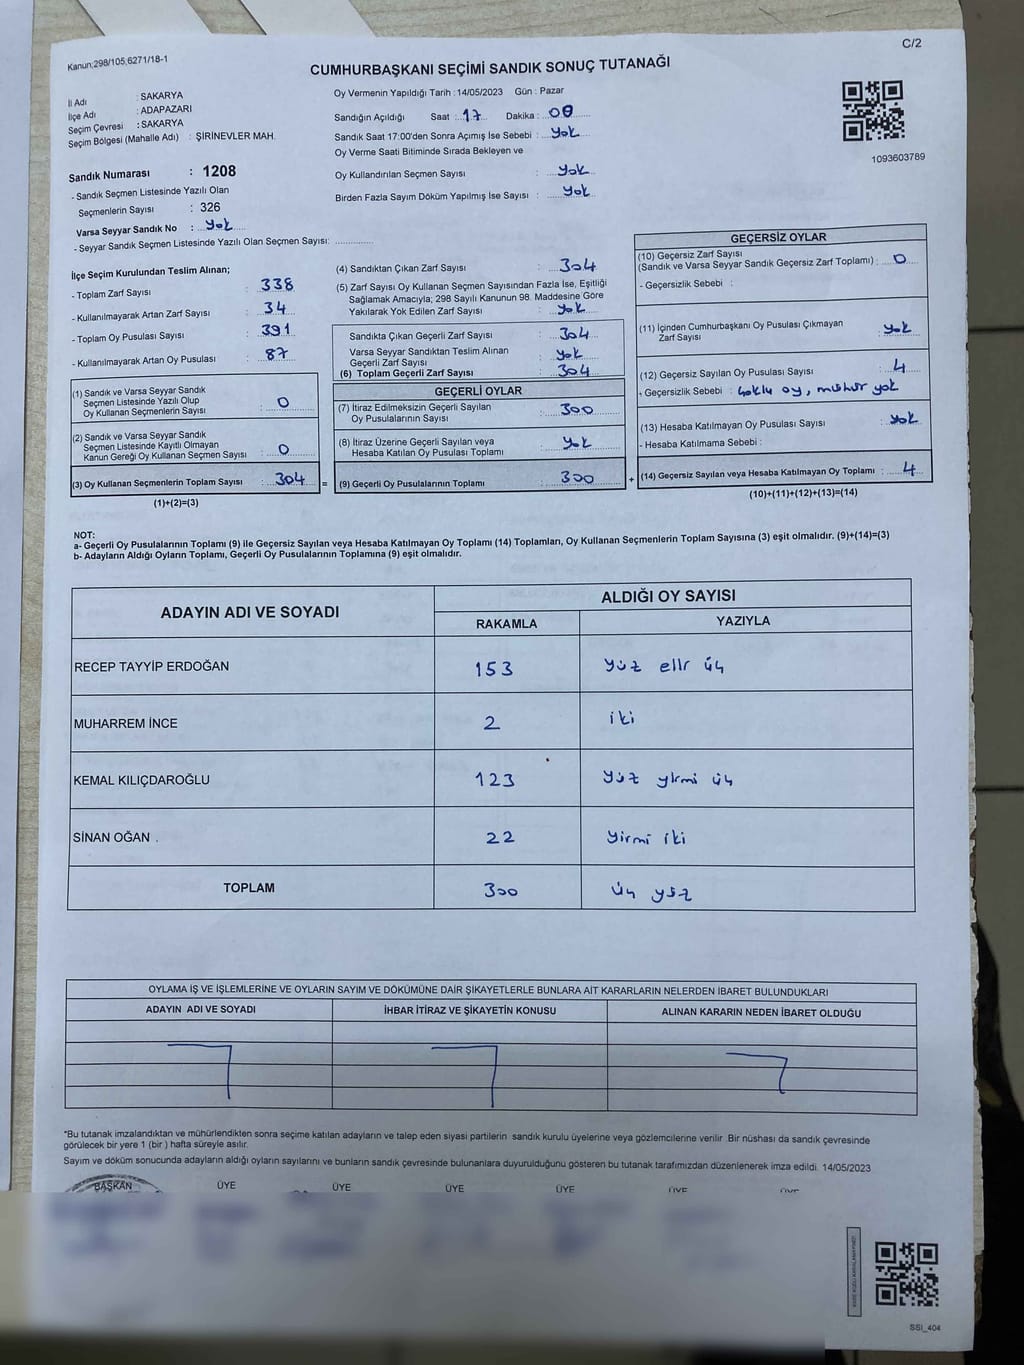 Kanun;298/105,6271/18-1
C/2
CUMHURBAŞKANI SEÇİMİ SANDIK SONUÇ TUTANAĞI
İl Adı : SAKARYA
İlçe Adı : ADAPAZARI
Seçim Çevresi : SAKARYA
Seçim Bölgesi (Mahalle Adı) : ŞİRİNEVLER MAH.
Sandık Numarası : 1208
- Sandık Seçmen Listesinde Yazılı Olan
Seçmenlerin Sayısı : 326
Varsa Seyyar Sandık No : yok
- Seyyar Sandık Seçmen Listesinde Yazılı Olan Seçmen Sayısı: ..............
Oy Vermenin Yapıldığı Tarih : 14/05/2023 Gün : Pazar
Sandığın Açıldığı Saat : 17 Dakika : 00
Sandık Saat 17:00'den Sonra Açımış İse Sebebi : yok
Oy Verme Saati Bitiminde Sırada Bekleyen ve
Oy Kullandırılan Seçmen Sayısı : yok
Birden Fazla Sayım Döküm Yapılmış İse Sayısı : yok
1093603789
İlçe Seçim Kurulundan Teslim Alınan;
- Toplam Zarf Sayısı : 338
- Kullanılmayarak Artan Zarf Sayısı : 34
- Toplam Oy Pusulası Sayısı : 391
- Kullanılmayarak Artan Oy Pusulası : 87
(1) Sandık ve Varsa Seyyar Sandık
Seçmen Listesinde Yazılı Olup
Oy Kullanan Seçmenlerin Sayısı : 0
(2) Sandık ve Varsa Seyyar Sandık
Seçmen Listesinde Kayıtlı Olmayan
Kanun Gereği Oy Kullanan Seçmen Sayısı : 0
(3) Oy Kullanan Seçmenlerin Toplam Sayısı : 304 =
(1)+(2)=(3)
(4) Sandıktan Çıkan Zarf Sayısı : 304
(5) Zarf Sayısı Oy Kullanan Seçmen Sayısından Fazla İse, Eşitliği
Sağlamak Amacıyla; 298 Sayılı Kanunun 98. Maddesine Göre
Yakılarak Yok Edilen Zarf Sayısı : yok
Sandıkta Çıkan Geçerli Zarf Sayısı : 304
Varsa Seyyar Sandıktan Teslim Alınan
Geçerli Zarf Sayısı : yok
(6) Toplam Geçerli Zarf Sayısı : 304
GEÇERLİ OYLAR
(7) İtiraz Edilmeksizin Geçerli Sayılan
Oy Pusulalarının Sayısı : 300
(8) İtiraz Üzerine Geçerli Sayılan veya
Hesaba Katılan Oy Pusulası Toplamı : yok
(9) Geçerli Oy Pusulalarının Toplamı : 300 +
GEÇERSİZ OYLAR
(10) Geçersiz Zarf Sayısı
(Sandık ve Varsa Seyyar Sandık Geçersiz Zarf Toplamı) : 0
- Geçersizlik Sebebi :
(11) İçinden Cumhurbaşkanı Oy Pusulası Çıkmayan
Zarf Sayısı : yok
(12) Geçersiz Sayılan Oy Pusulası Sayısı : 4
- Geçersizlik Sebebi : çoklu oy, mühür yok
(13) Hesaba Katılmayan Oy Pusulası Sayısı : yok
- Hesaba Katılmama Sebebi :
(14) Geçersiz Sayılan veya Hesaba Katılmayan Oy Toplamı : 4
(10)+(11)+(12)+(13)=(14)
NOT:
a- Geçerli Oy Pusulalarının Toplamı (9) ile Geçersiz Sayılan veya Hesaba Katılmayan Oy Toplamı (14) Toplamları, Oy Kullanan Seçmenlerin Toplam Sayısına (3) eşit olmalıdır. (9)+(14)=(3)
b- Adayların Aldığı Oyların Toplamı, Geçerli Oy Pusulalarının Toplamına (9) eşit olmalıdır.
ADAYIN ADI VE SOYADI
ALDIĞI OY SAYISI
RAKAMLA YAZIYLA
RECEP TAYYİP ERDOĞAN 153 yüz elli üç
MUHARREM İNCE 2 iki
KEMAL KILIÇDAROĞLU 123 yüz yirmi üç
SİNAN OĞAN 22 yirmi iki
TOPLAM 300 üç yüz
OYLAMA İŞ VE İŞLEMLERİNE VE OYLARIN SAYIM VE DÖKÜMÜNE DAİR ŞİKAYETLERLE BUNLARA AİT KARARLARIN NELERDEN İBARET BULUNDUKLARI
ADAYIN ADI VE SOYADI İHBAR İTİRAZ VE ŞİKAYETİN KONUSU ALINAN KARARIN NEDEN İBARET OLDUĞU
*Bu tutanak imzalandıktan ve mühürlendikten sonra seçime katılan adayların ve talep eden siyasi partilerin sandık kurulu üyelerine veya gözlemcilerine verilir. Bir nüshası da sandık çevresinde
görülecek bir yere 1 (bir) hafta süreyle asılır.
Sayım ve döküm sonucunda adayların aldığı oyların sayılarını ve bunların sandık çevresinde bulunanlara duyurulduğunu gösteren bu tutanak tarafımızdan düzenlenerek imza edildi. 14/05/2023
BAŞKAN ÜYE ÜYE ÜYE ÜYE ÜYE ÜYE
SSI_404